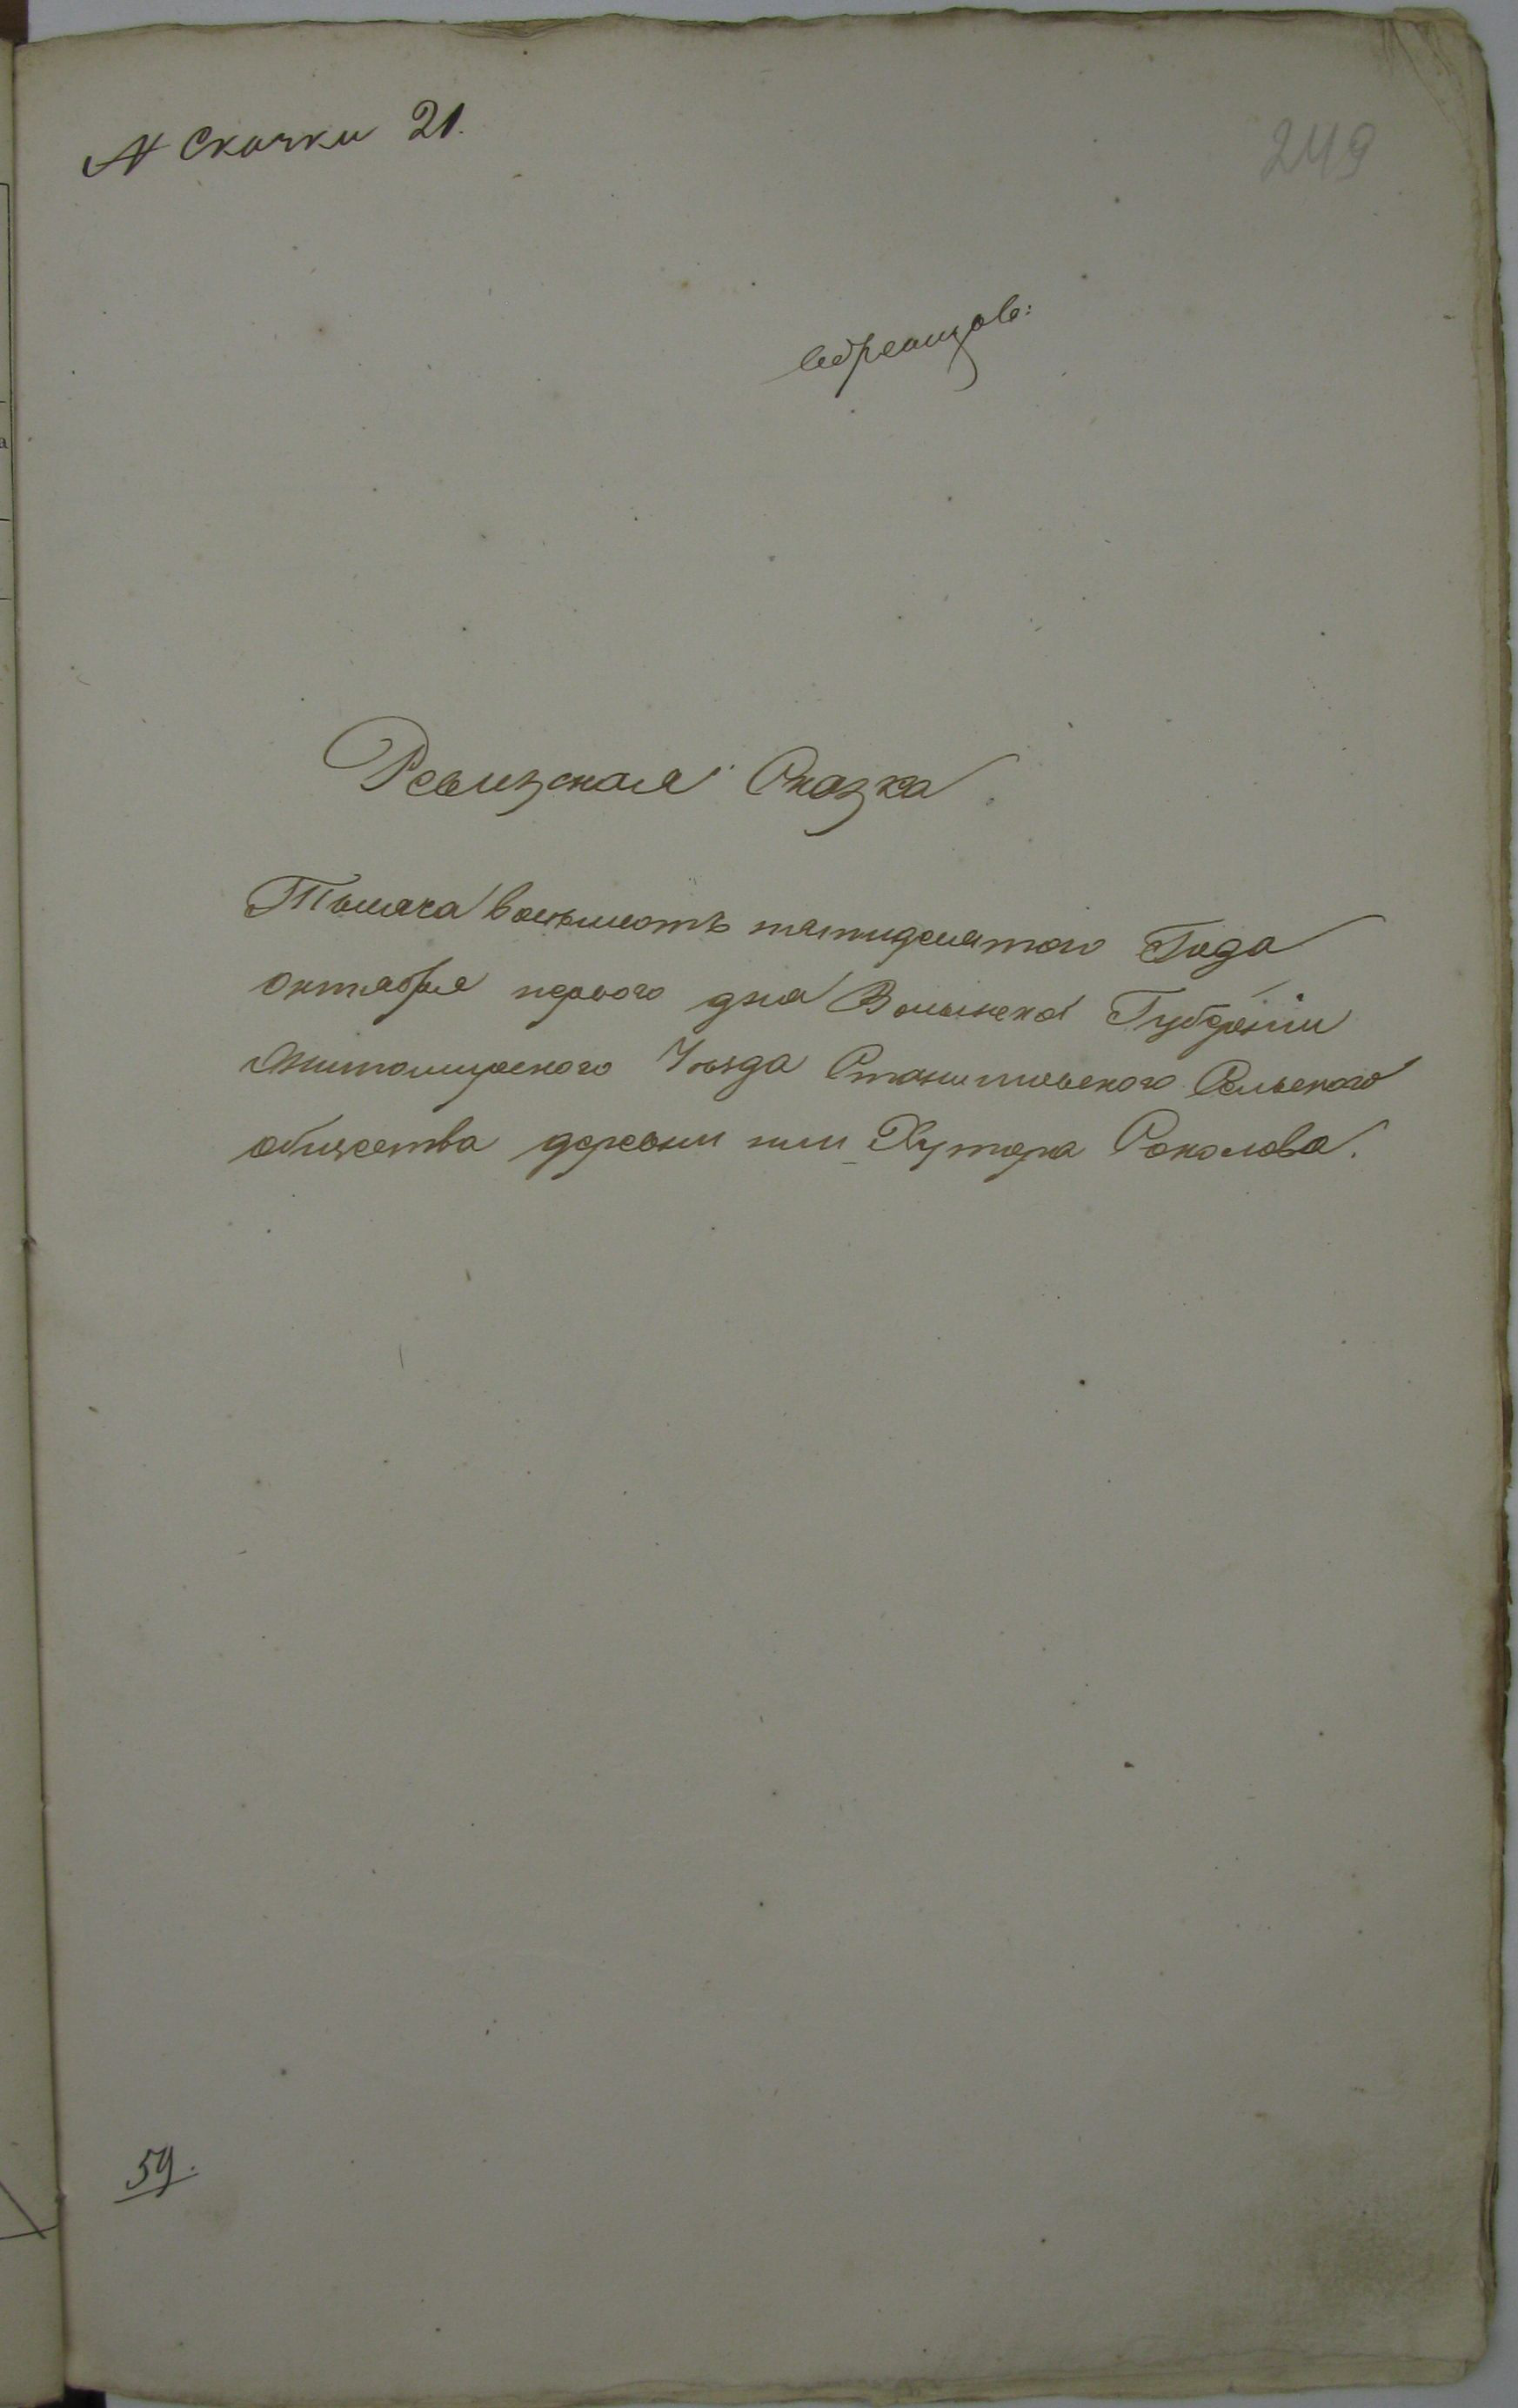 № Сказки 21.
249
Ревизская Сказка
Тысяча восьмсотъ пятидесятого Года
октября первого дня Волынской Губернии
Житомирского Уезда Станишовского Сельского
общества деревни или Хутора Соколова.
59.